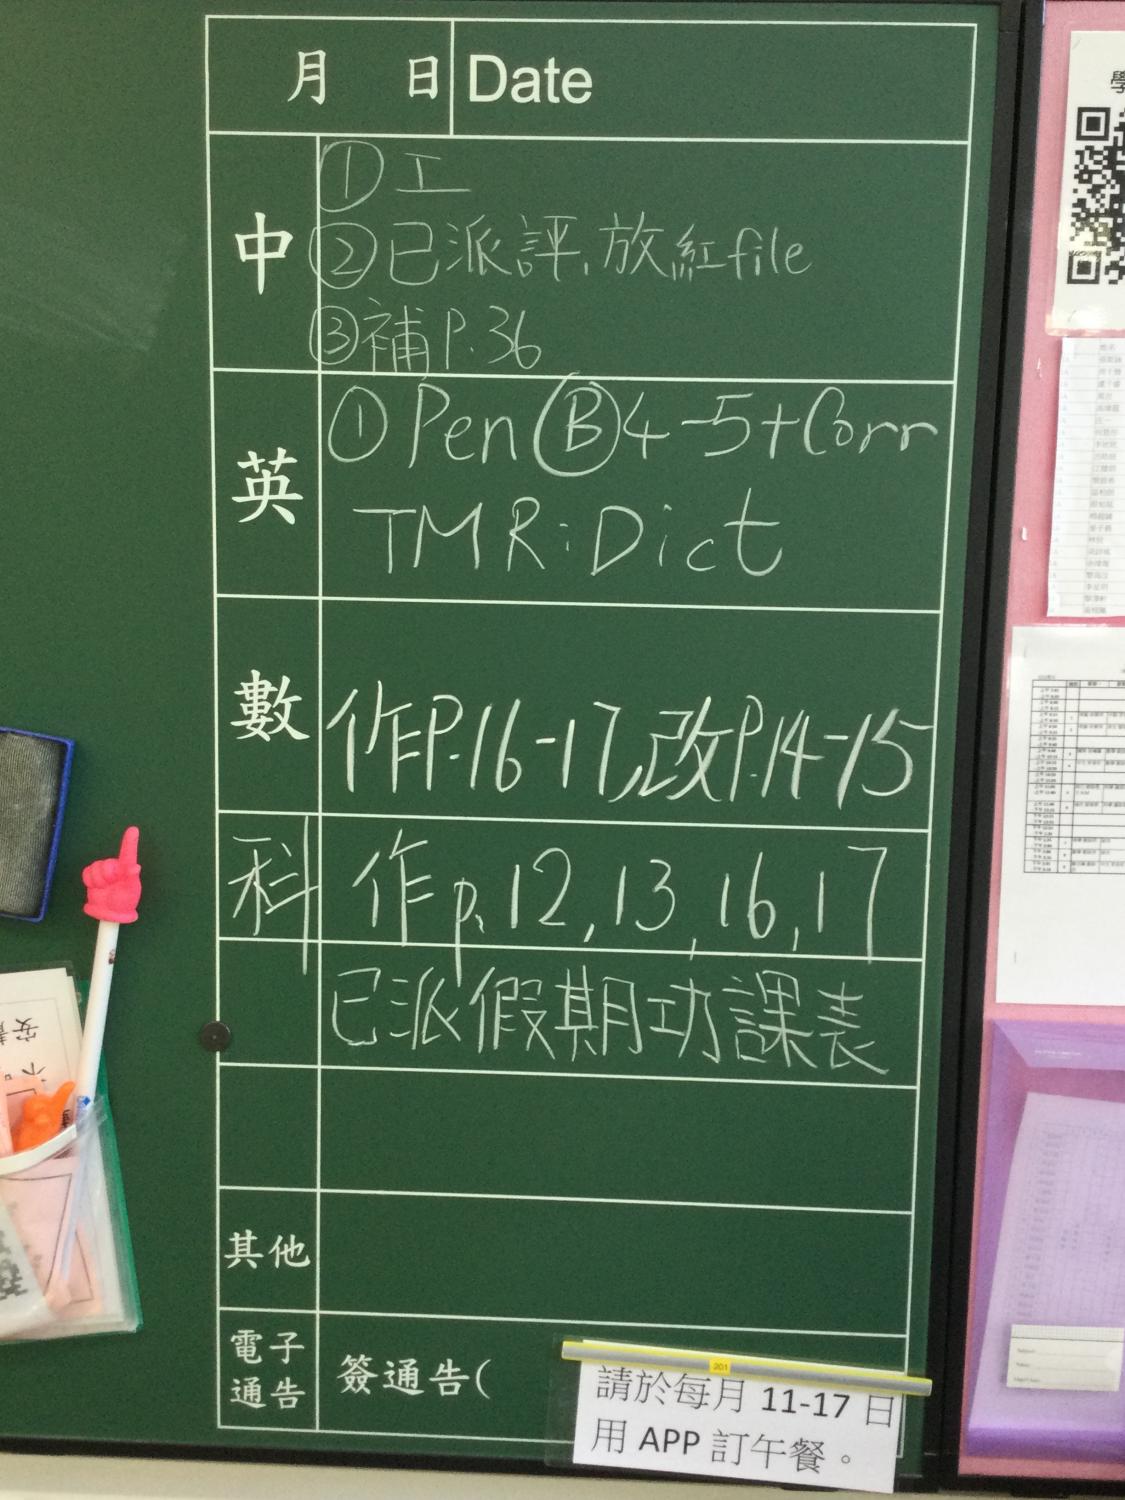 月 日 Date
中
①工
②已派評,放紅file
③補P.36
英
①Pen Ⓑ4-5+Corr
TMR:Dict
數
作P.16-17,改P.14-15
科
作p.12,13,16,17
已派假期功課表
其他
電子
通告
簽通告(
201
請於每月 11-17 日
用 APP 訂午餐。
學